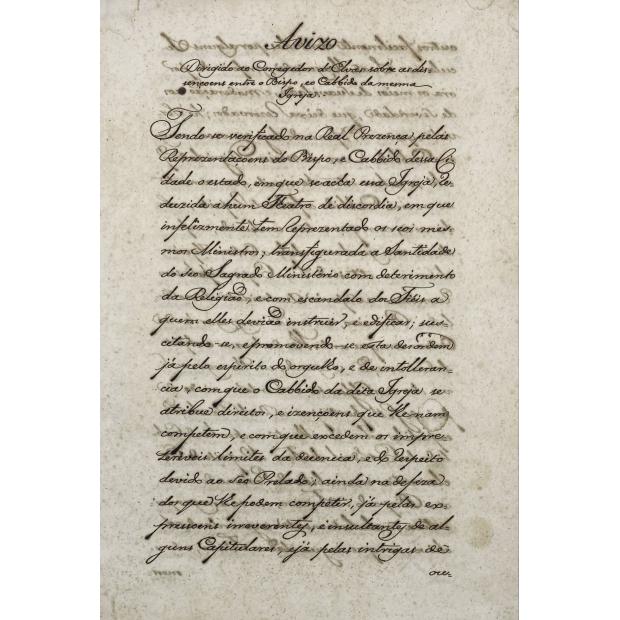 Avizo
Dirigido ao Corregedor d'Elvas sobre as dis-
sençoens entre o Bispo, eo Cabbido da mesma
Igreja.
Tendo se verificado na Real Prezença, pelas
Reprezentaçoens do Bispo, e Cabbido dessa Ci
dade o estado, em que se acha essa Igreja, re
duzida a hum Teatro de discordia, em que
infelizmente tem reprezentado os seos mes
mos Ministros; transfigurada a Santidade
do seo Sagrado Ministerio com deterimento
da Religião, e com escandalo dos Fieis a
quem elles devião instruir, e edificar; sus
citando-se, e promovendo-se esta desordem
já pelo espirito do orgulho, e de intolleran
cia, com que o Cabbido da dita Igreja se
atribue direitos, e izençoens que lhe nam
competem, e com que excedem os impre
teriveis limites da decencia, e do respeito
devido ao seo Prelado; ainda na defeza
dos que lhe podem competir, já pelas ex-
pressoens irreverentes, e insultantes de al
guns Capitulares, e já pelas intrigas de
ou-